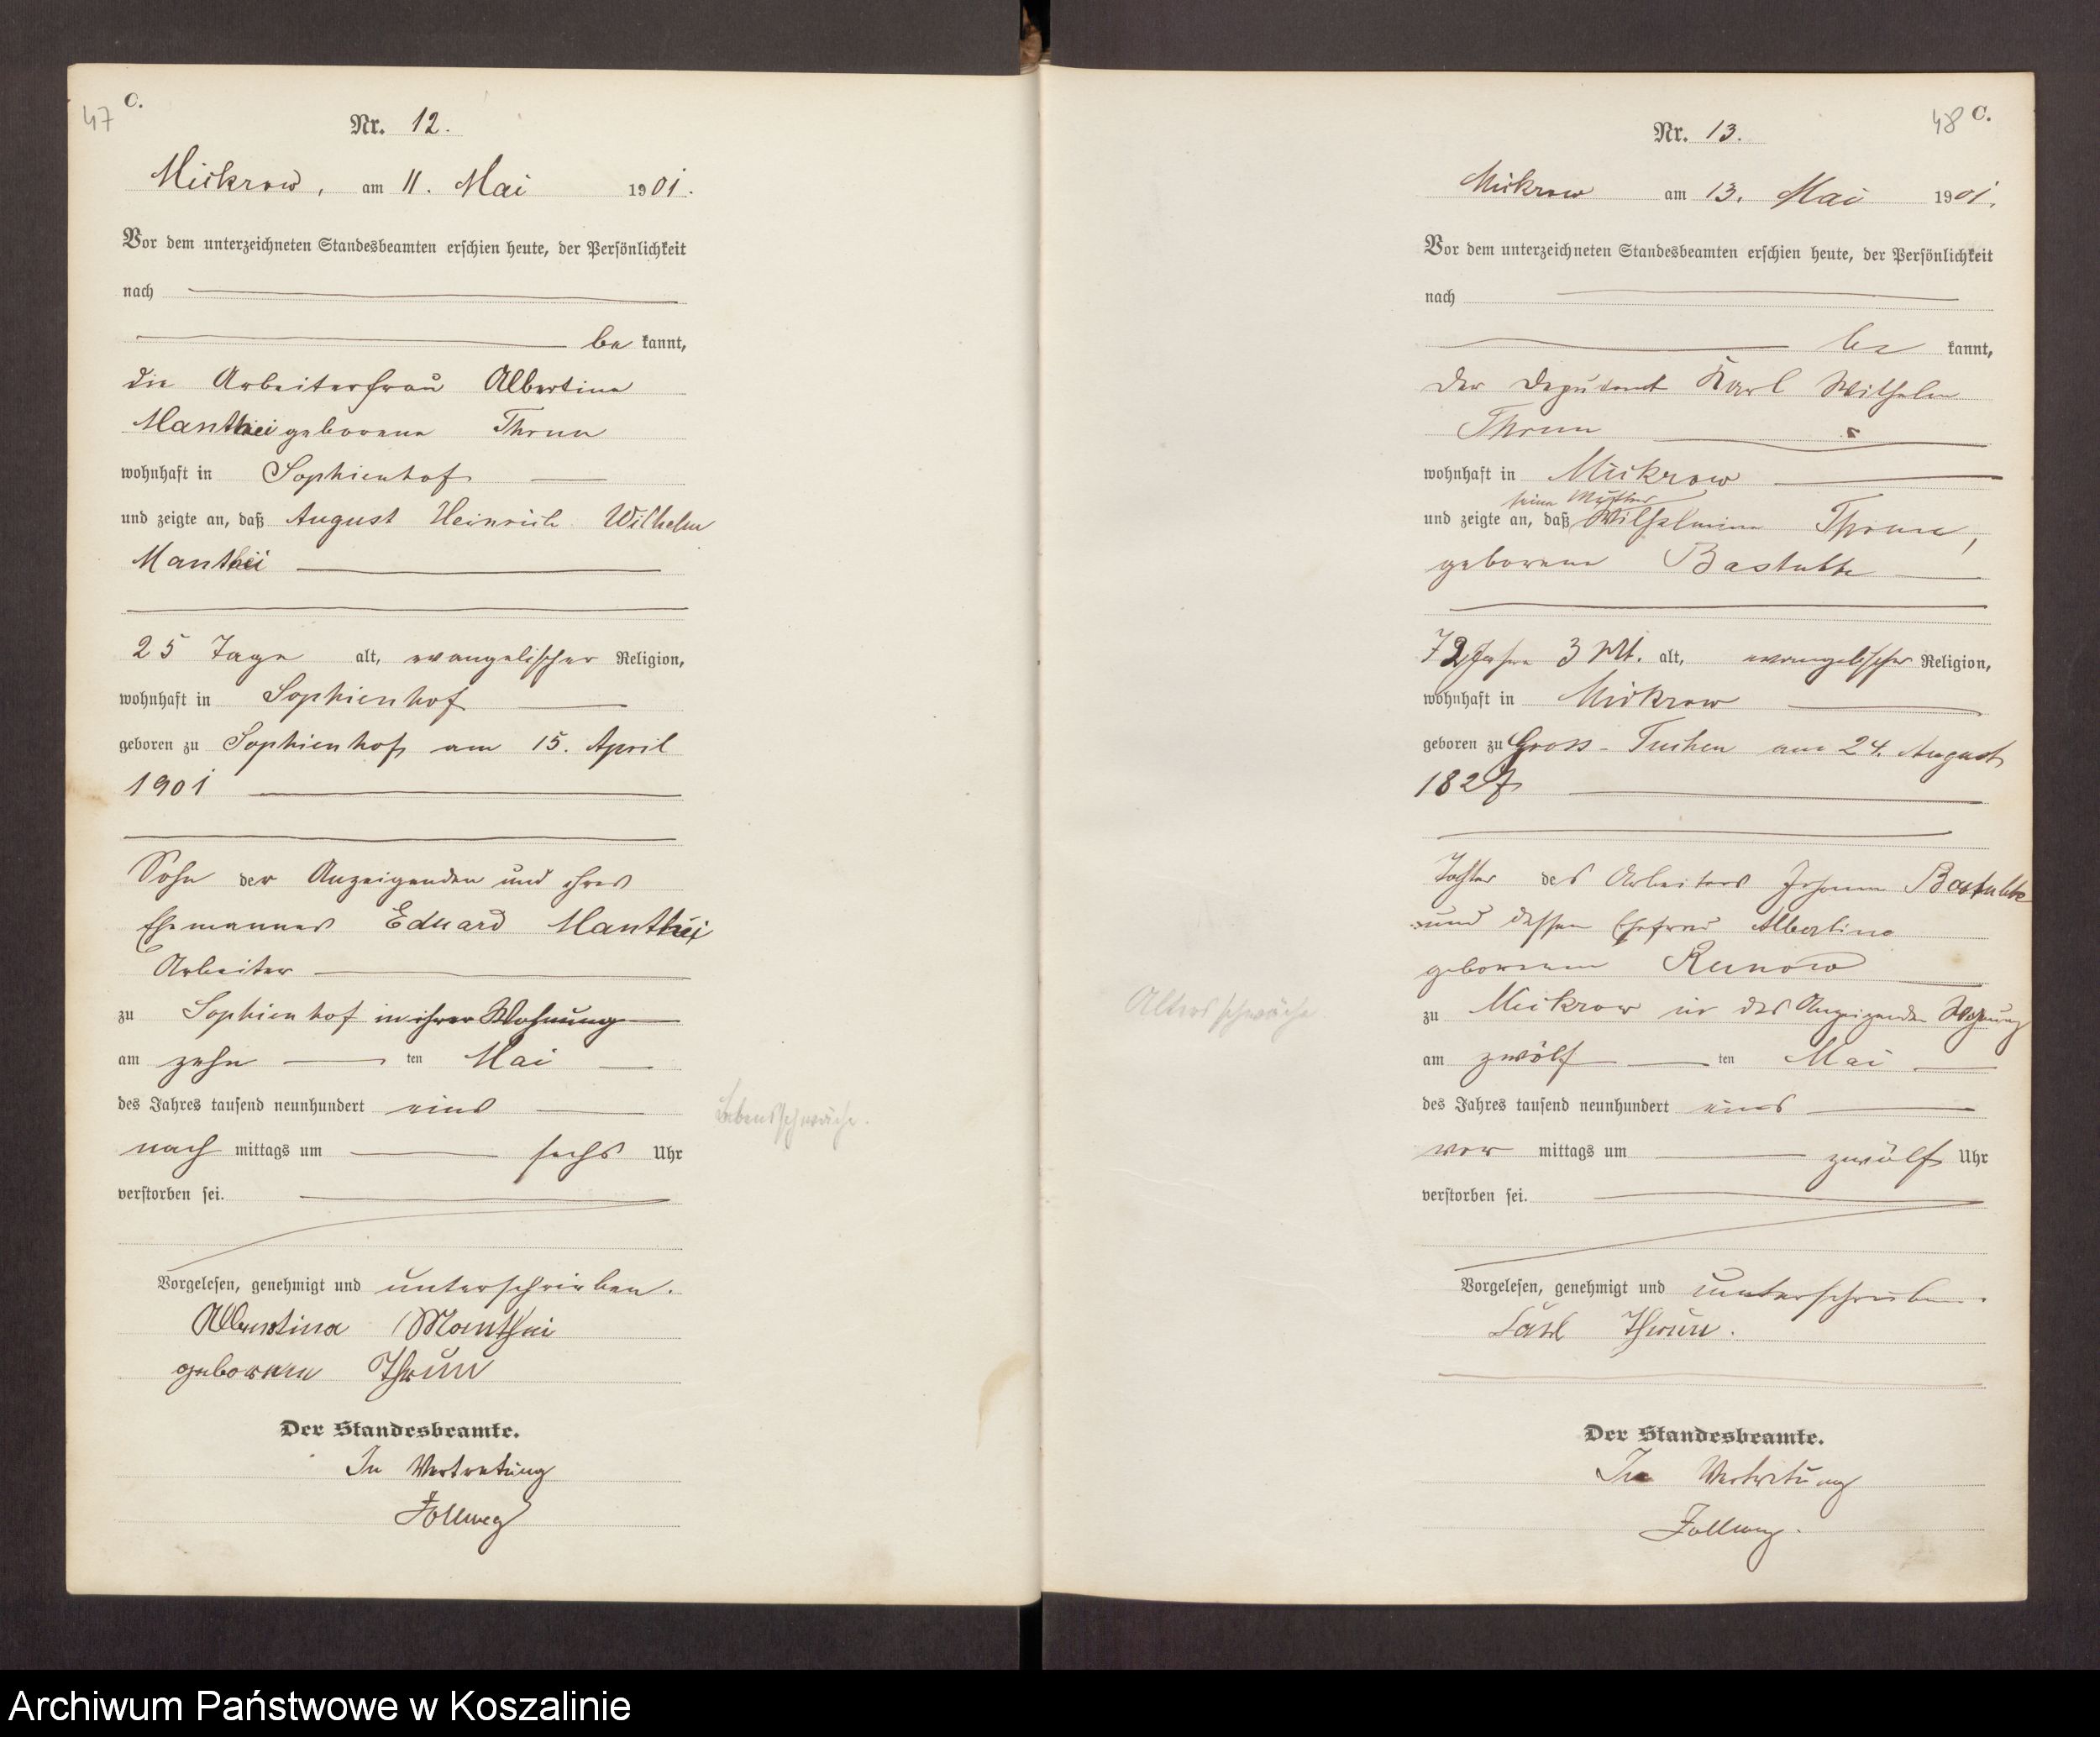 47
C.
Nr. 12.
Mickrow, am 11. Mai 1901.
Vor dem unterzeichneten Standesbeamten erschien heute, der Persönlichkeit
nach
be kannt,
die Arbeiterfrau Albertine
Manthei geborene Thrun
wohnhaft in Sophienhof
und zeigte an, daß August Heinrich Wilhelm
Manthei
25 Tage alt, evangelischer Religion,
wohnhaft in Sophienhof
geboren zu Sophienhof am 15. April
1901
Sohn der Anzeigenden und ihres
Ehemannes Eduard Manthei
Arbeiter
zu Sophienhof in ihrer Wohnung
am zehn ten Mai
des Jahres tausend neunhundert eins
Lebensschwäche.
nach mittags um sechs Uhr
verstorben sei.
Vorgelesen, genehmigt und unterschrieben.
Albertine Manthei
geborene Thrun
Der Standesbeamte.
In Vertretung
Zollweg
48
C.
Nr. 13.
Mickrow am 13. Mai 1901.
Vor dem unterzeichneten Standesbeamten erschien heute, der Persönlichkeit
nach
be kannt,
der Deputant Karl Wilhelm
Thrun
wohnhaft in Mickrow
seine Mutter
und zeigte an, daß Wilhelmine Thrun,
geborene Bastubbe
72 Jahre 3 Mt. alt, evangelischer Religion,
wohnhaft in Mickrow
geboren zu Gross-Tuchen am 24. August
Tochter des Arbeiters Johann Bastubbe
und dessen Ehefrau Albertine
geborenen Runow
Altersschwäche
zu Mickrow in des Anzeigenden Wohnung
am zwölf ten Mai
des Jahres tausend neunhundert eins
vor mittags um zwölf Uhr
verstorben sei.
Vorgelesen, genehmigt und unterschrieben.
Karl Thrun.
Der Standesbeamte.
In Vertretung
Zollweg.
Archiwum Państwowe w Koszalinie